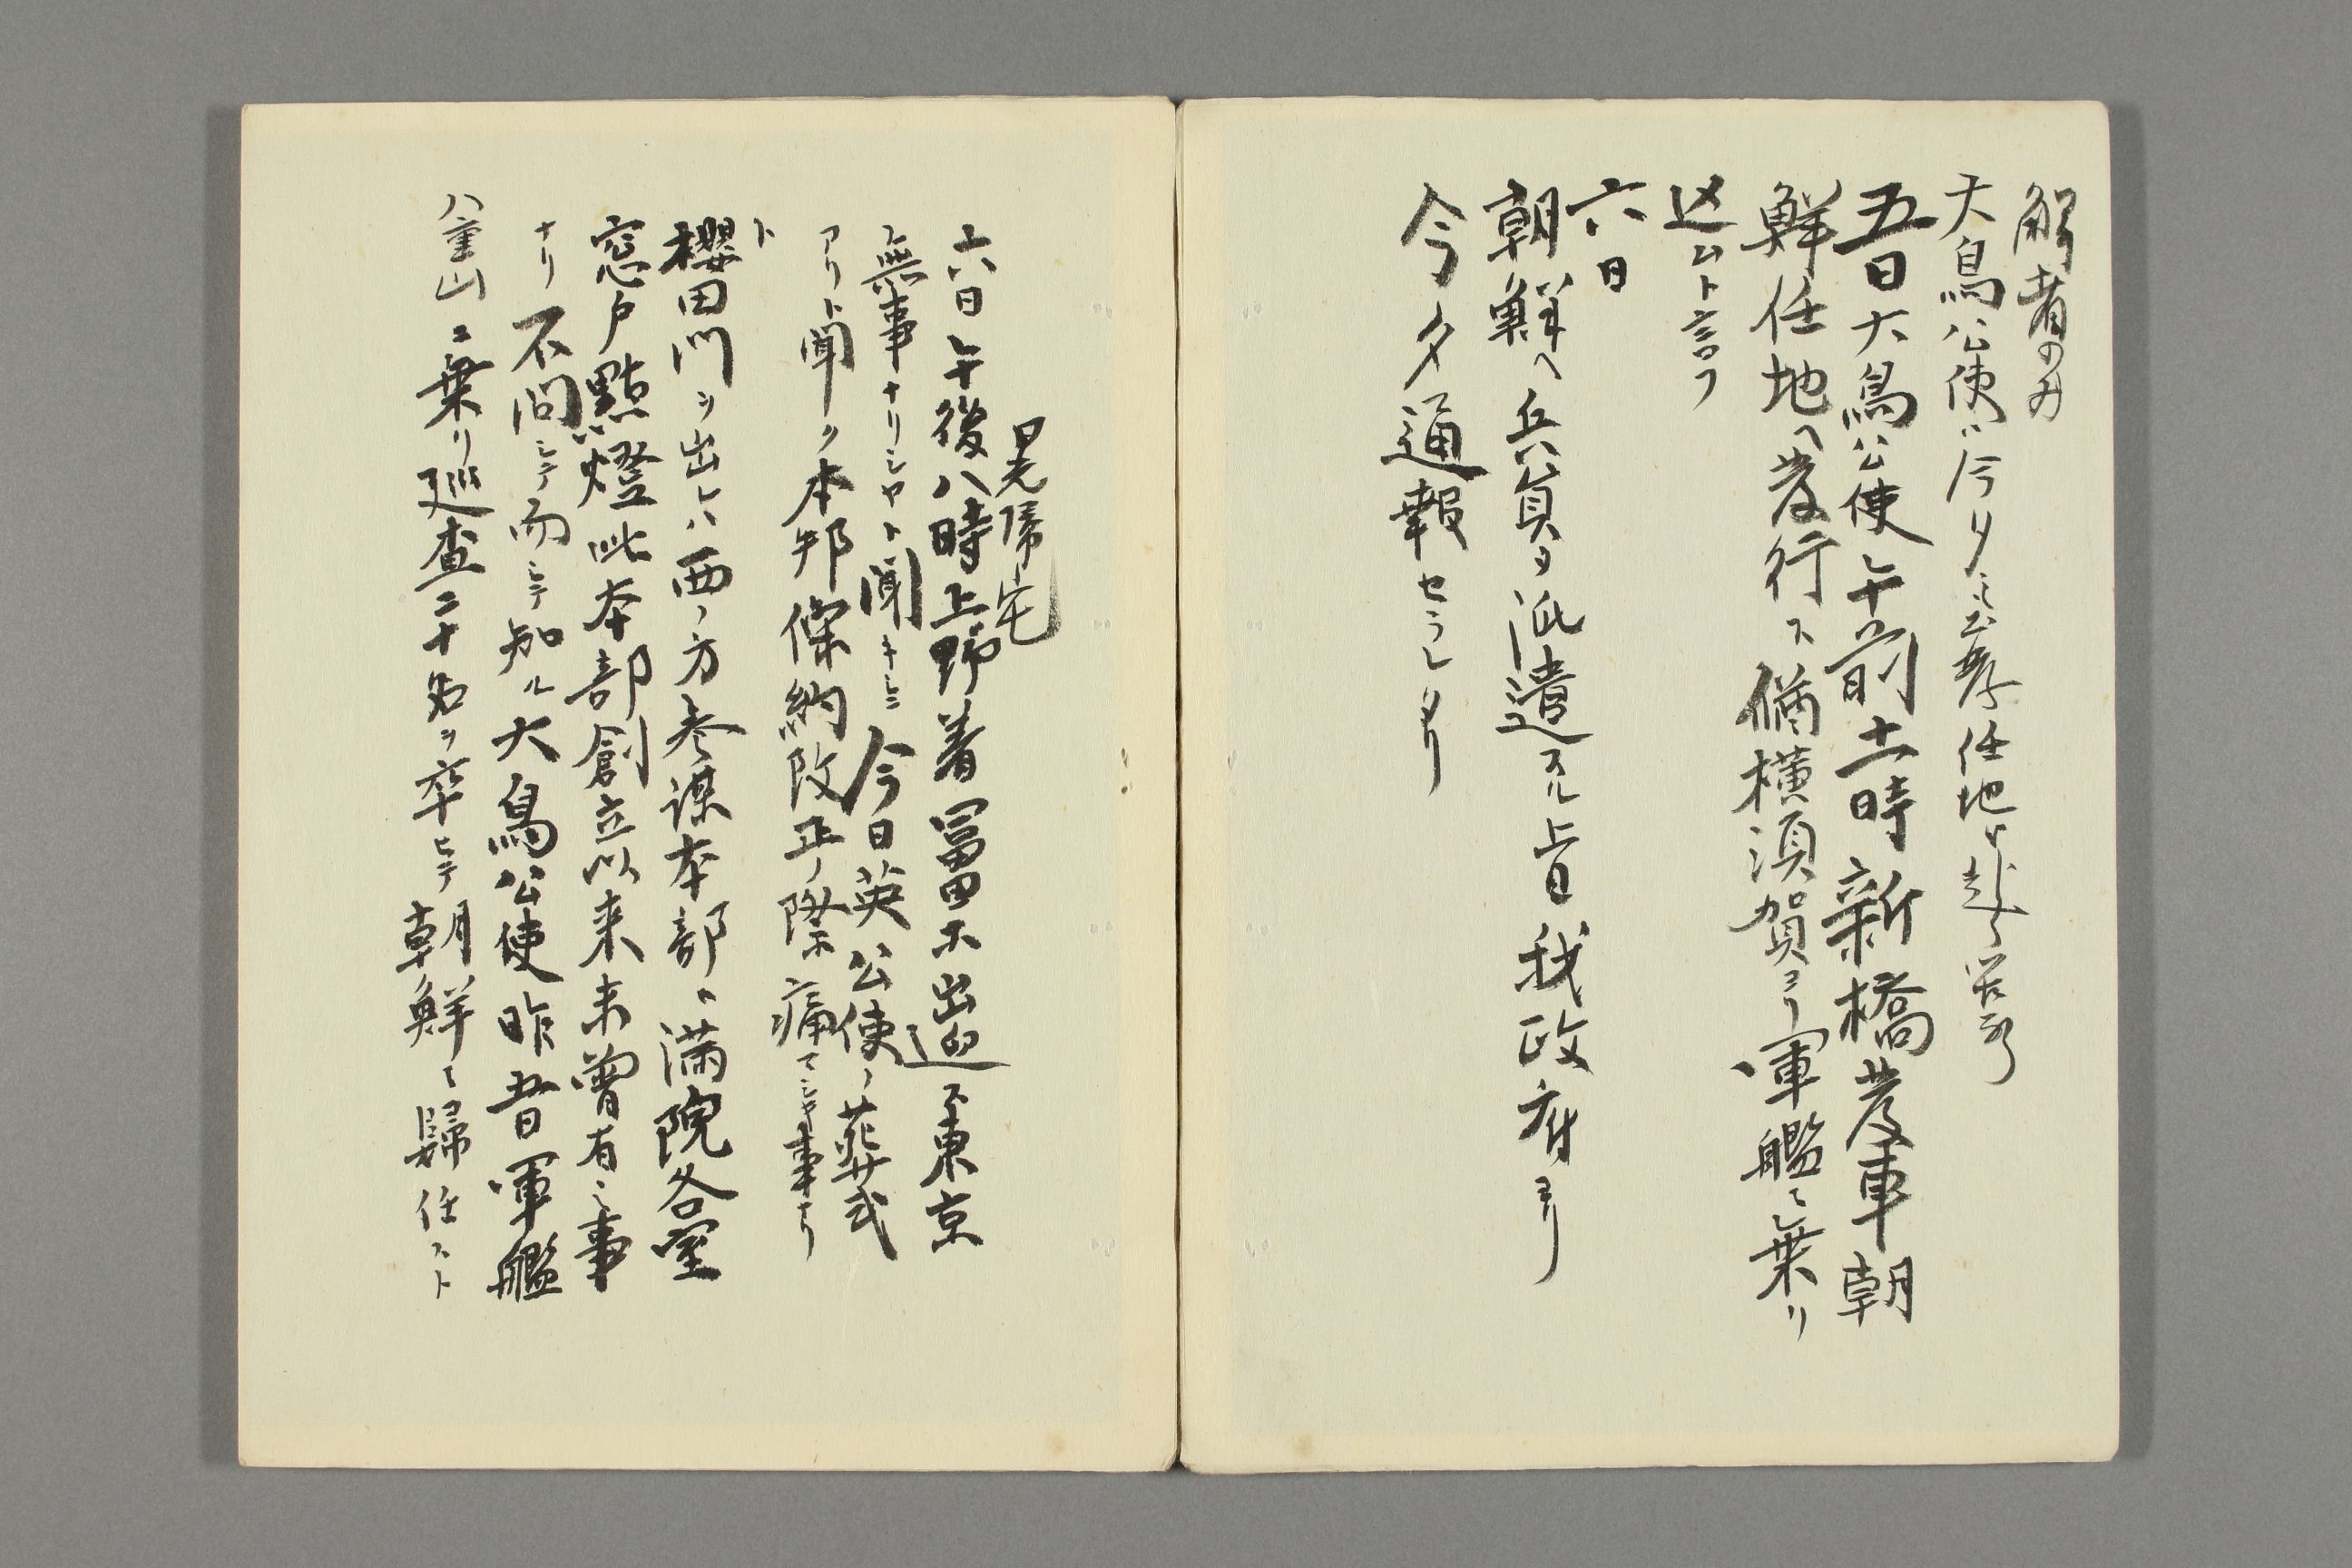 解者のみ
大鳥公使ハ今夕ニも發任地ニ赴く筈なり
五日大鳥公使午前十一時新橋發車朝
鮮任地へ發行ス偤横須賀ヨリ軍艦ニ乗リ
込ムト言フ
六日
朝鮮へ兵員ヲ派遣スル旨日我政府ヨリ
今夕通報セラレタリ
晃帰宅
六日午後八時上野着冨田不出迎ス東京
無事ナリシヤト聞キシニ今日英公使ノ葬式
アリト聞ク本邦條約改正ノ際痛マシキ事ナリ
ト
櫻田門ヲ出レハ西ノ方参謀本部ハ満院各室
窓戸點燈此本部創立以来未曽有之事
ナリ不問シテ而シテ知ル大鳥公使昨五日軍艦
八重山ニ乗リ巡査二十名ヲ卒ヒテ朝鮮ニ歸任スト